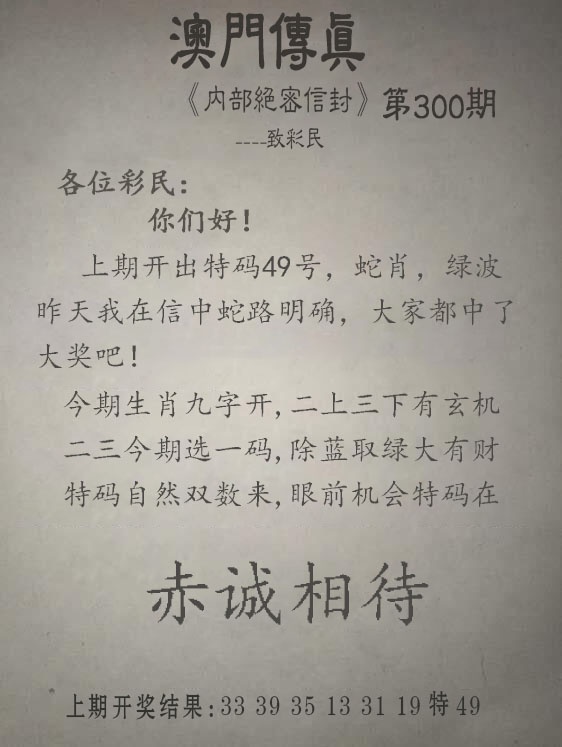 澳門傳眞
《内部絕密信封》第300期
----致彩民
各位彩民：
你们好！
上期开出特码49号，蛇肖，绿波
昨天我在信中蛇路明确，大家都中了
大奖吧！
今期生肖九字开,二上三下有玄机
二三今期选一码,除蓝取绿大有财
特码自然双数来,眼前机会特码在
赤诚相待
上期开奖结果:33 39 35 13 31 19 特 49